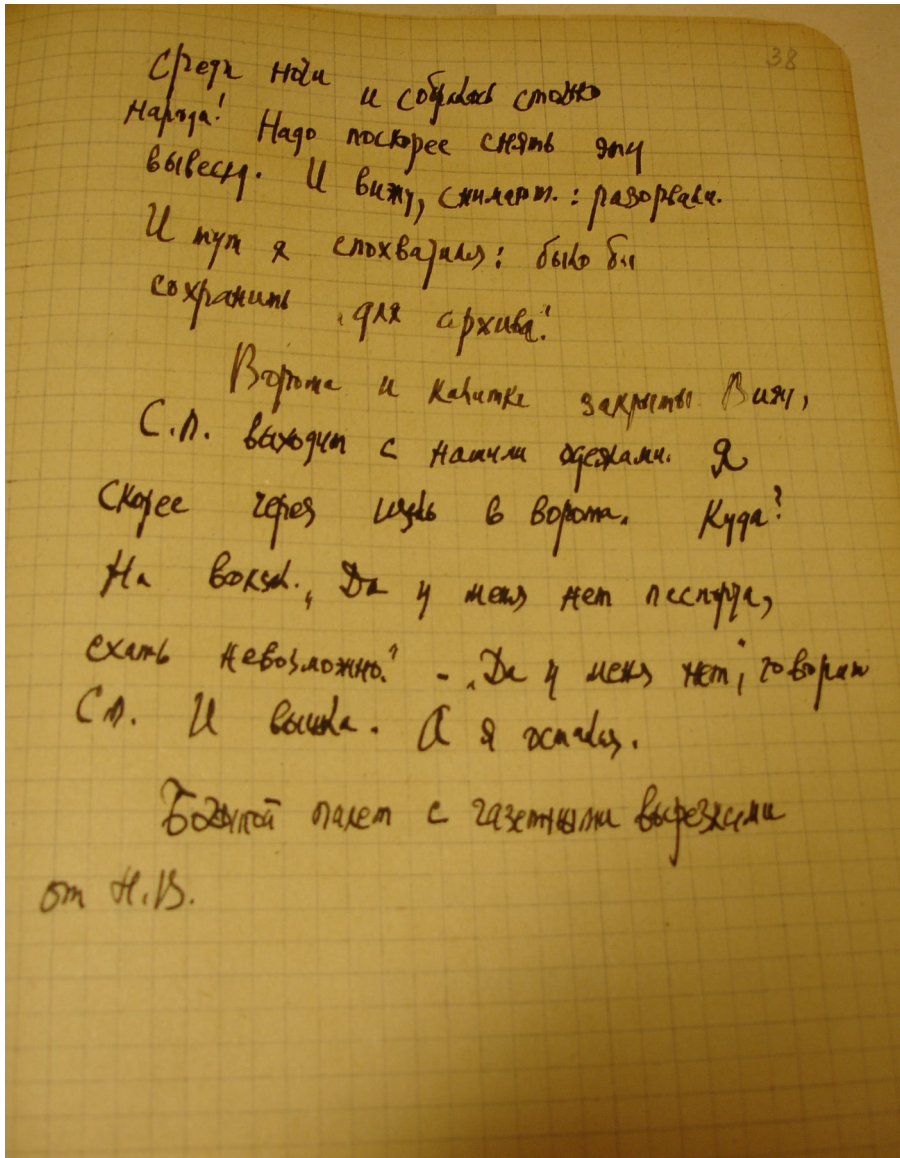 38
Среди ночи и собралось столько
народа! Надо поскорее снять эту
вывеску. И вижу, снимают.: разорвали.
И тут я спохватился: было бы
сохранить для архива!
Ворота и калитка закрыты Вижу,
С.П. выходит с нашими одежами. Я
скорее через щель в ворота. Куда?
На вокзал. „Да у меня нет паспорта,
ехать невозможно." - „Да у меня нет", говорит
С.П. И вышла. А я остался.
Большой пакет с газетными вырезками
от Н.В.